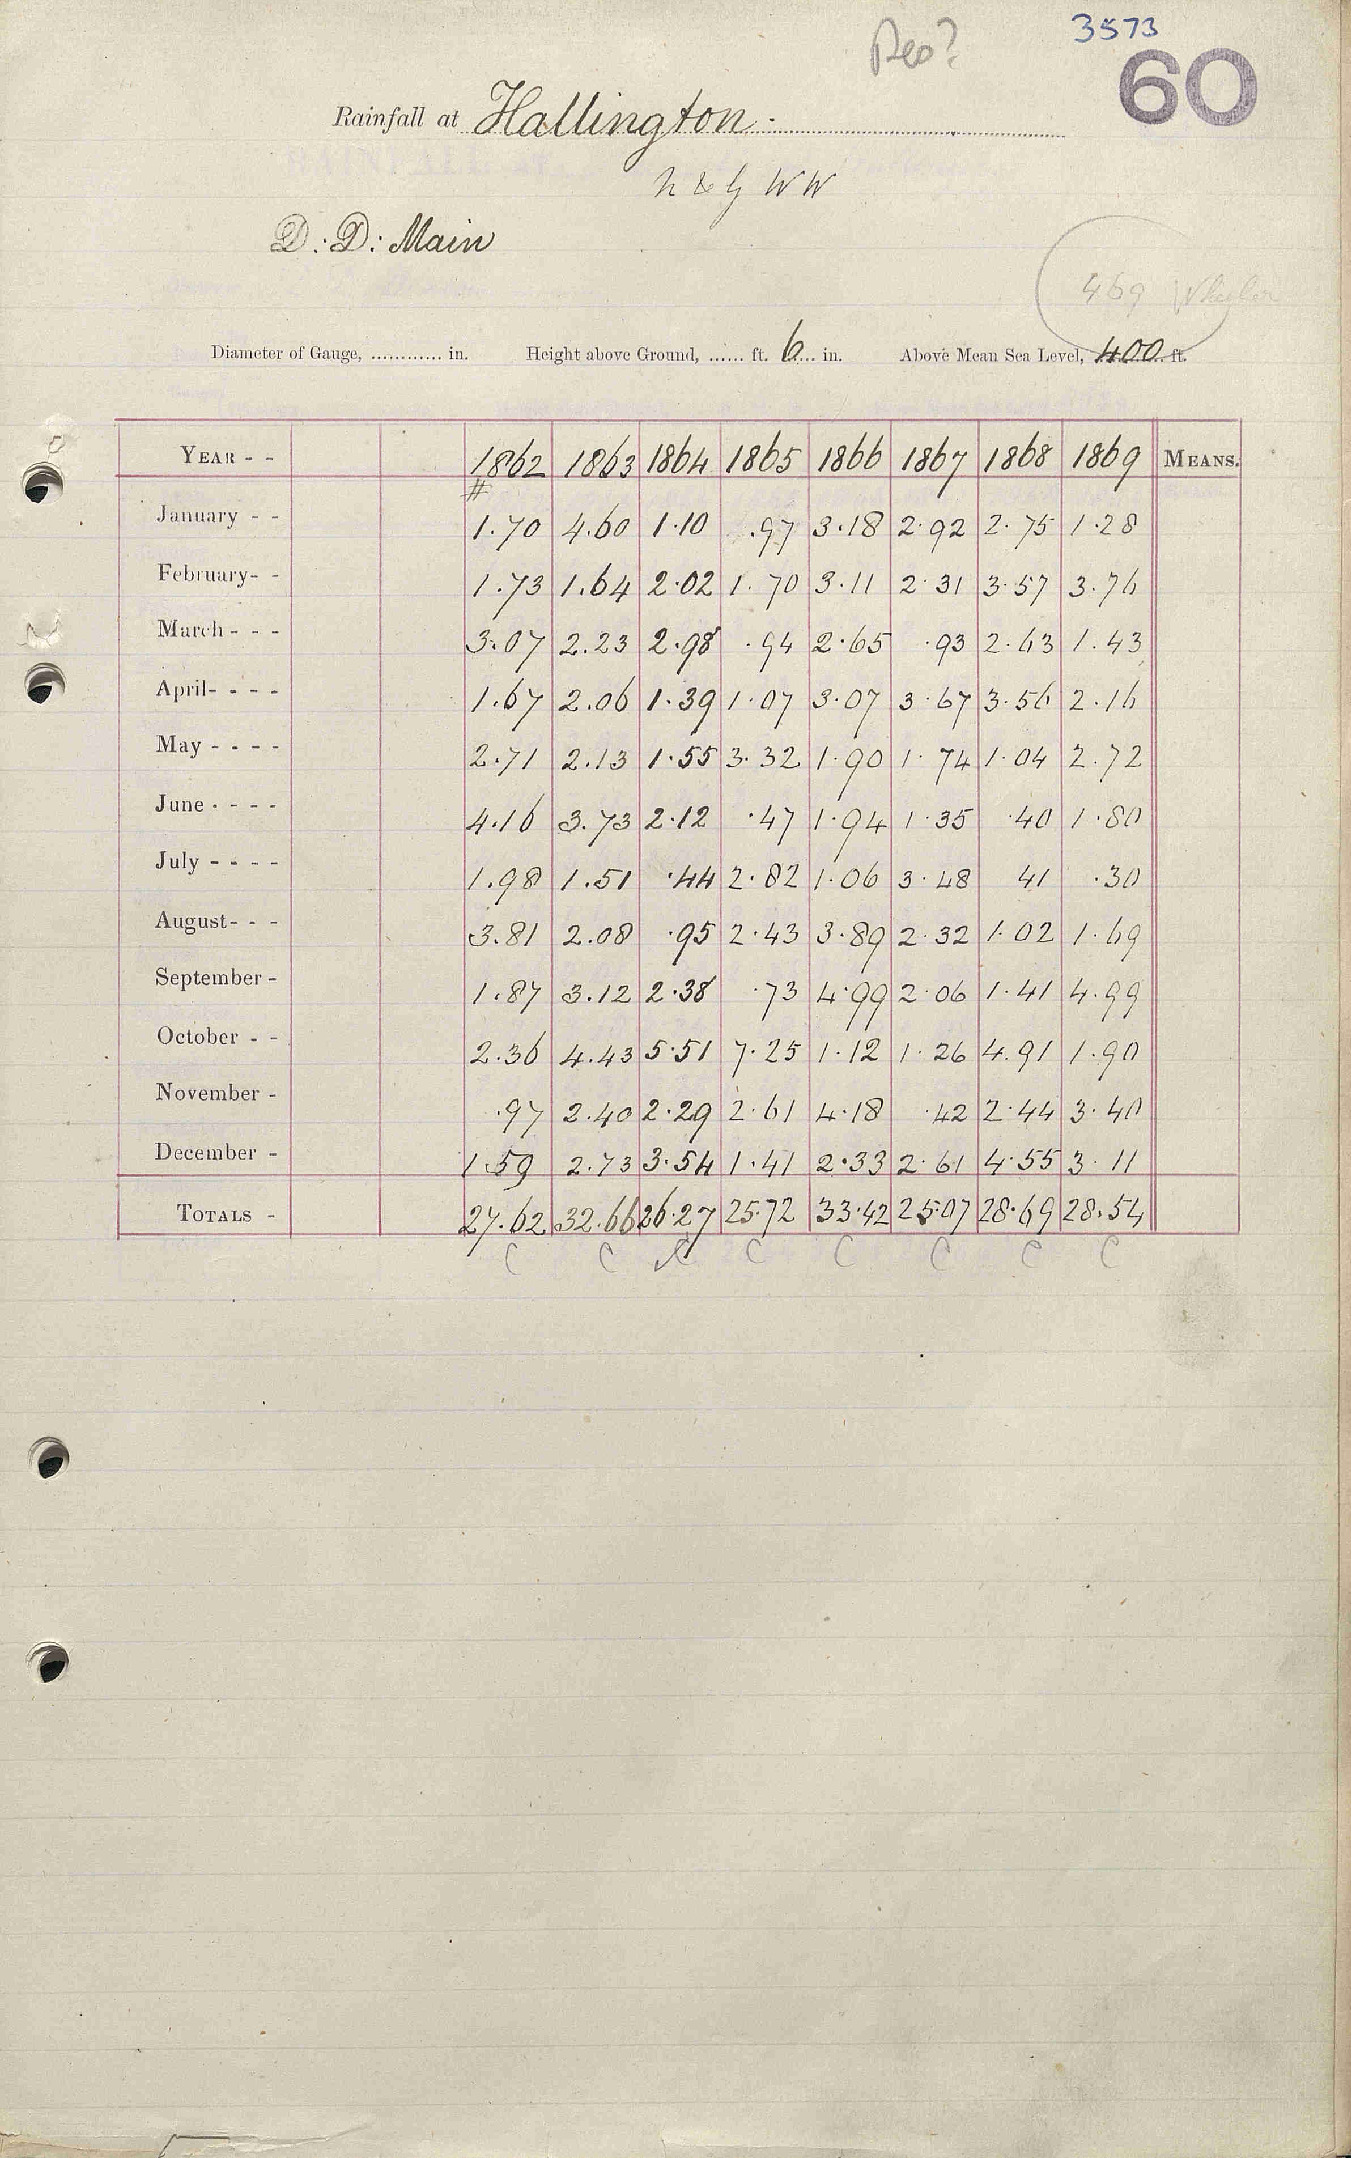 3573
60
Rainfall at Hallington.
N & G WW
D. D. Main
469 Wheeler
Diameter of Gauge, ............ in. Height above Ground, ...... ft. 6 in. Above Mean Sea Level, 400 ft.
YEAR - - 1862 1863 1864 1865 1866 1867 1868 1869 MEANS.
#
January - - 1.70 4.60 1.10 .97 3.18 2.92 2.75 1.28
February - - 1.73 1.64 2.02 1.70 3.11 2.31 3.57 3.76
March - - - 3.07 2.23 2.98 .94 2.65 .93 2.63 1.43
April - - - - 1.67 2.06 1.39 1.07 3.07 3.67 3.56 2.16
May - - - - 2.71 2.13 1.55 3.32 1.90 1.74 1.04 2.72
June - - - - 4.16 3.73 2.12 .47 1.94 1.35 .40 1.80
July - - - - 1.98 1.51 .44 2.82 1.06 3.48 41 .30
August - - - 3.81 2.08 .95 2.43 3.89 2.32 1.02 1.69
September - 1.87 3.12 2.38 .73 4.99 2.06 1.41 4.99
October - - 2.36 4.43 5.51 7.25 1.12 1.26 4.91 1.90
November - .97 2.40 2.29 2.61 4.18 .42 2.44 3.40
December - 1.59 2.73 3.54 1.41 2.33 2.61 4.55 3.11
TOTALS - 27.62 32.66 26.27 25.72 33.42 25.07 28.69 28.54
C C C C C C C C